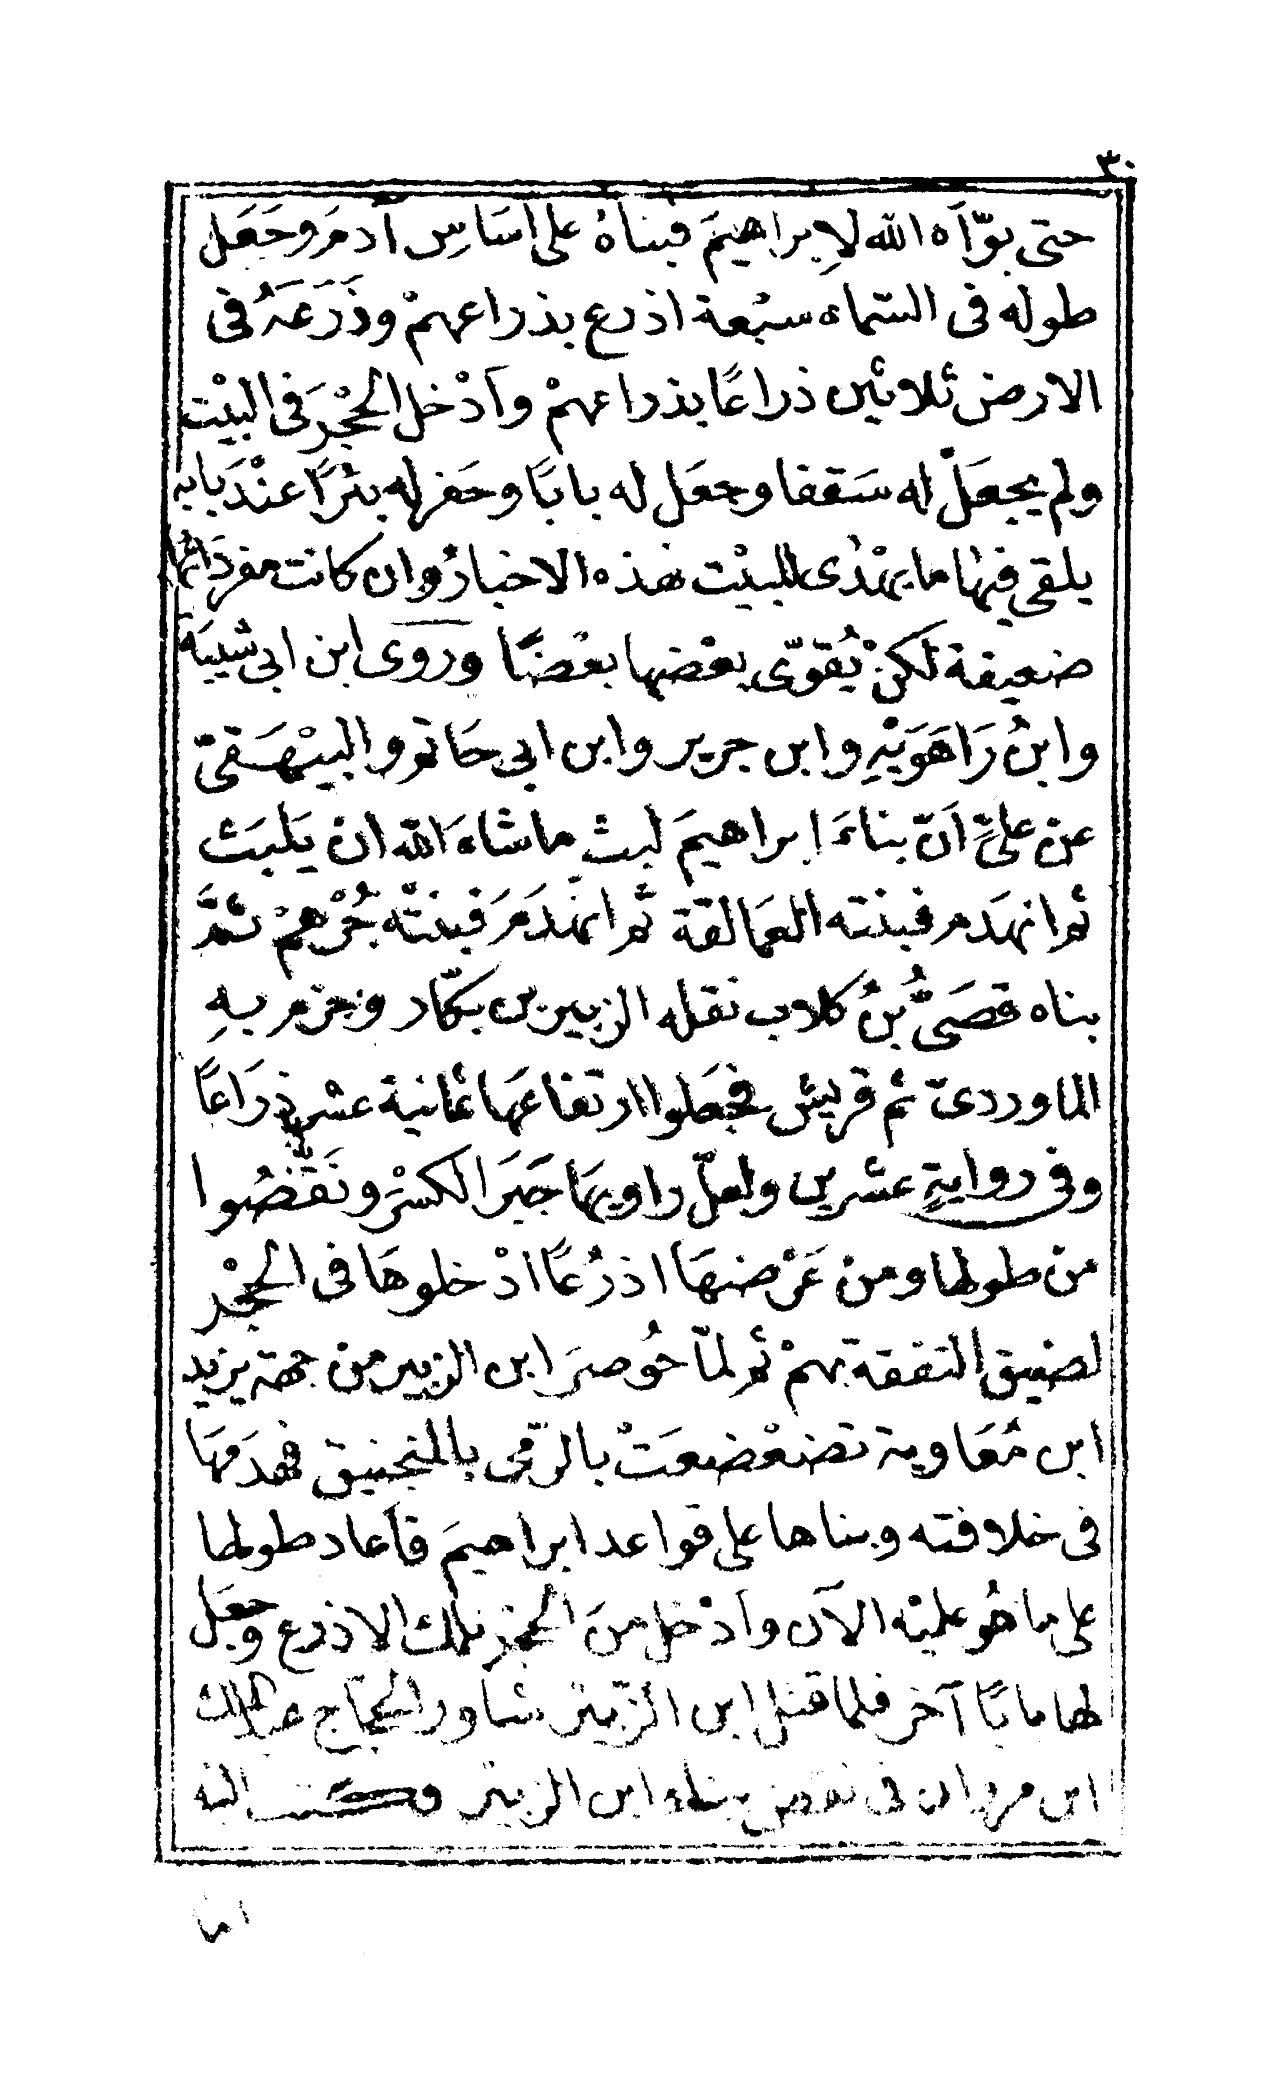 ٣٠
حتى بوّأه الله لإبراهيمَ فبناهُ على اسَاسِ آدمَ وجَعَل
طوله فى السّماء سبْعة اذرع بذراعهمْ وذَرَعَهُ فى
الارض ثلاثين ذراعًا بذراعهمْ وأدْخل الحْجْرَ فى البيْت
ولم يجعَلْ له سَقفا وجعَل له بابًا وحَفر له بئرًا عنْدَ بابه
يلقى فيها ما يهْدٰى للبيْت فهذه الاخبارُ وان كانت مفرداتُها
ضعيفة لكنْ يُقوّى بعْضها بعْضًا وروى ابن ابى شيْبَة
وابنُ رَاهَوَيْهِ وابن جرير وابن ابى حَاتم والبيْهَقىّ
عن علىٍّ أنّ بناءَ ابراهيمَ لبث ما شاءَ الله ان يَلبَث
ثم انهَدم فبنته العمَالقة ثم انهَدَمَ فبنتْه جُرْهمْ ثمَّ
بناه قصَىُّ بنُ كلاب نقله الزبير بن بكّار وجزم بهِ
الماوردىّ ثم قريش فجعَلوا ارتفاعَهَا ثمانية عشر ذِرَاعًا
وفى روايةٍ عشرين ولعلّ راويهَا جَبَرَ الكسْرَ ونَقَّصُوا
من طولها ومن عَرْضهَا اذرُعًا ادْخلوهَا فى الحْجْر
لضيق النفقة بهمْ ثم لمّا حُوصرَ ابن الزبير من جهة يزيد
ابن مُعَاوية تضعْضعَتْ بالرّمى بالمنجنيق فهدَمهَا
فى خلافته وبناها على قواعد ابراهيمَ فأعاد طولها
على ما هُو عليْه الآن وأدْخل منَ الحْجْر تلك الاذرع وجعَل
لها بابًا آخر فلما قتل ابن الزّبيْر شاور الحجّاج عبد الملك
ابن مروان فى نقض بناء ابن الزبيْر فكتب اليْه
اما